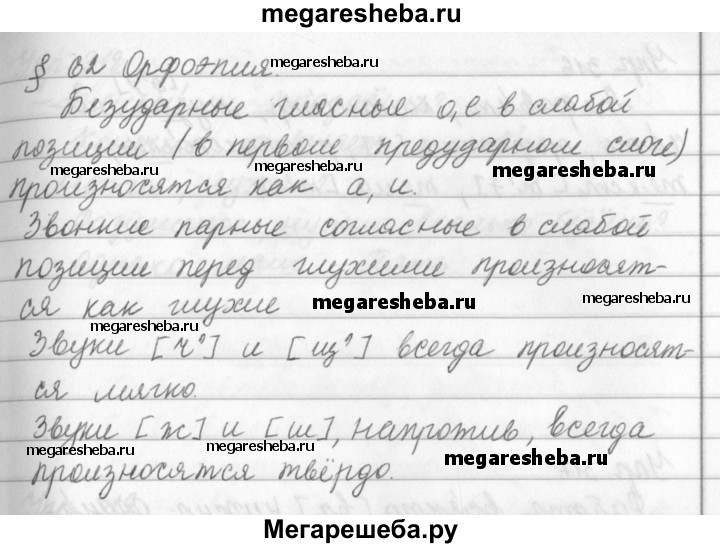 megaresheba.ru
§ 62 Орфоэпия.
megaresheba.ru
Безударные гласные о, е в слабой
позиции (в первом предударном слоге)
megaresheba.ru megaresheba.ru megaresheba.ru
произносятся как а, и.
Звонкие парные согласные в слабой
позиции перед глухими произносят-
ся как глухие
megaresheba.ru megaresheba.ru
megaresheba.ru
Звуки [ч'] и [щ'] всегда произносят-
ся мягко.
Звуки [ж] и [ш], напротив, всегда
megaresheba.ru megaresheba.ru megaresheba.ru
произносятся твёрдо.
Мегарешеба.ру